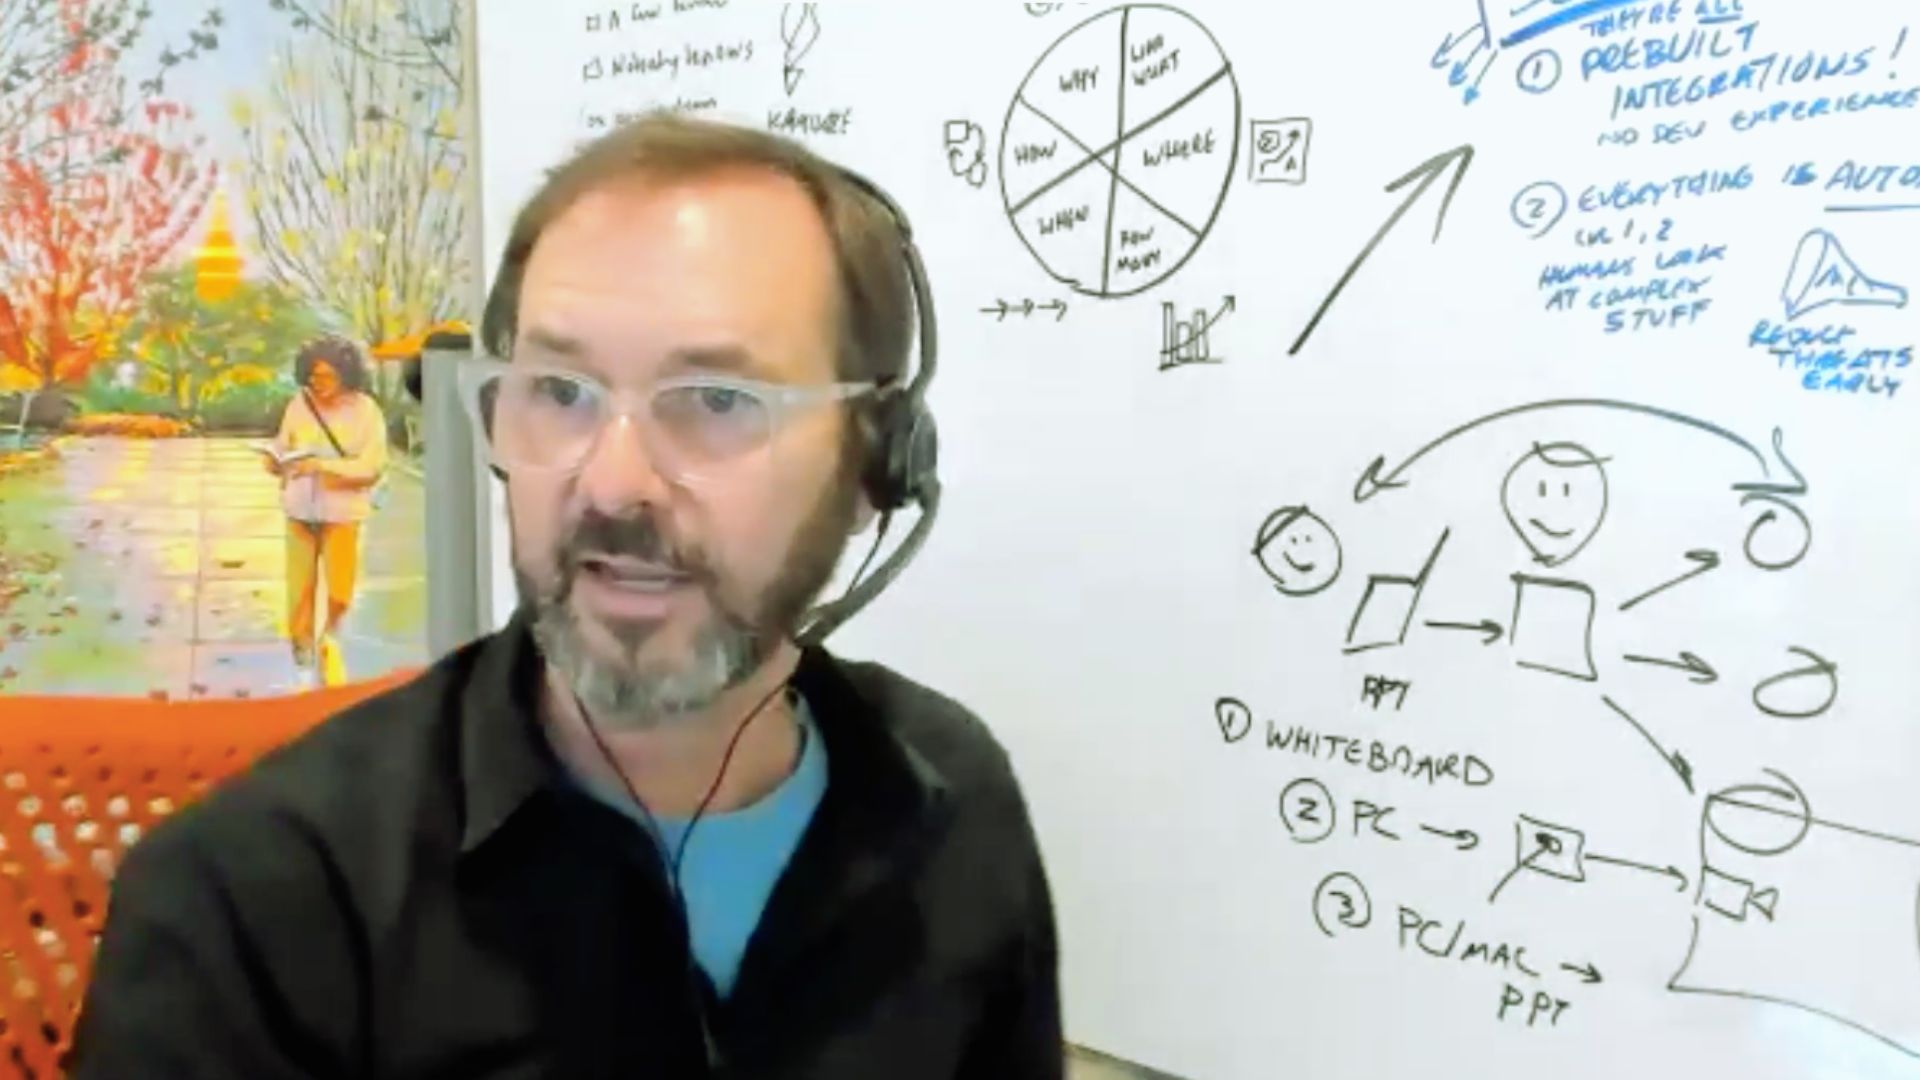 Nobody knows
WHY
WHAT
HOW
WHERE
WHEN
HOW
MANY
THEY'RE ALL
① PREBUILT
INTEGRATIONS!
NO DEV EXPERIENCE
② EVERYTHING IS AUTO
1, 2
HUMANS LOOK
AT COMPLEX
STUFF
REDUCE
THREATS
EARLY
PPT
① WHITEBOARD
② PC
③ PC/MAC
PPT